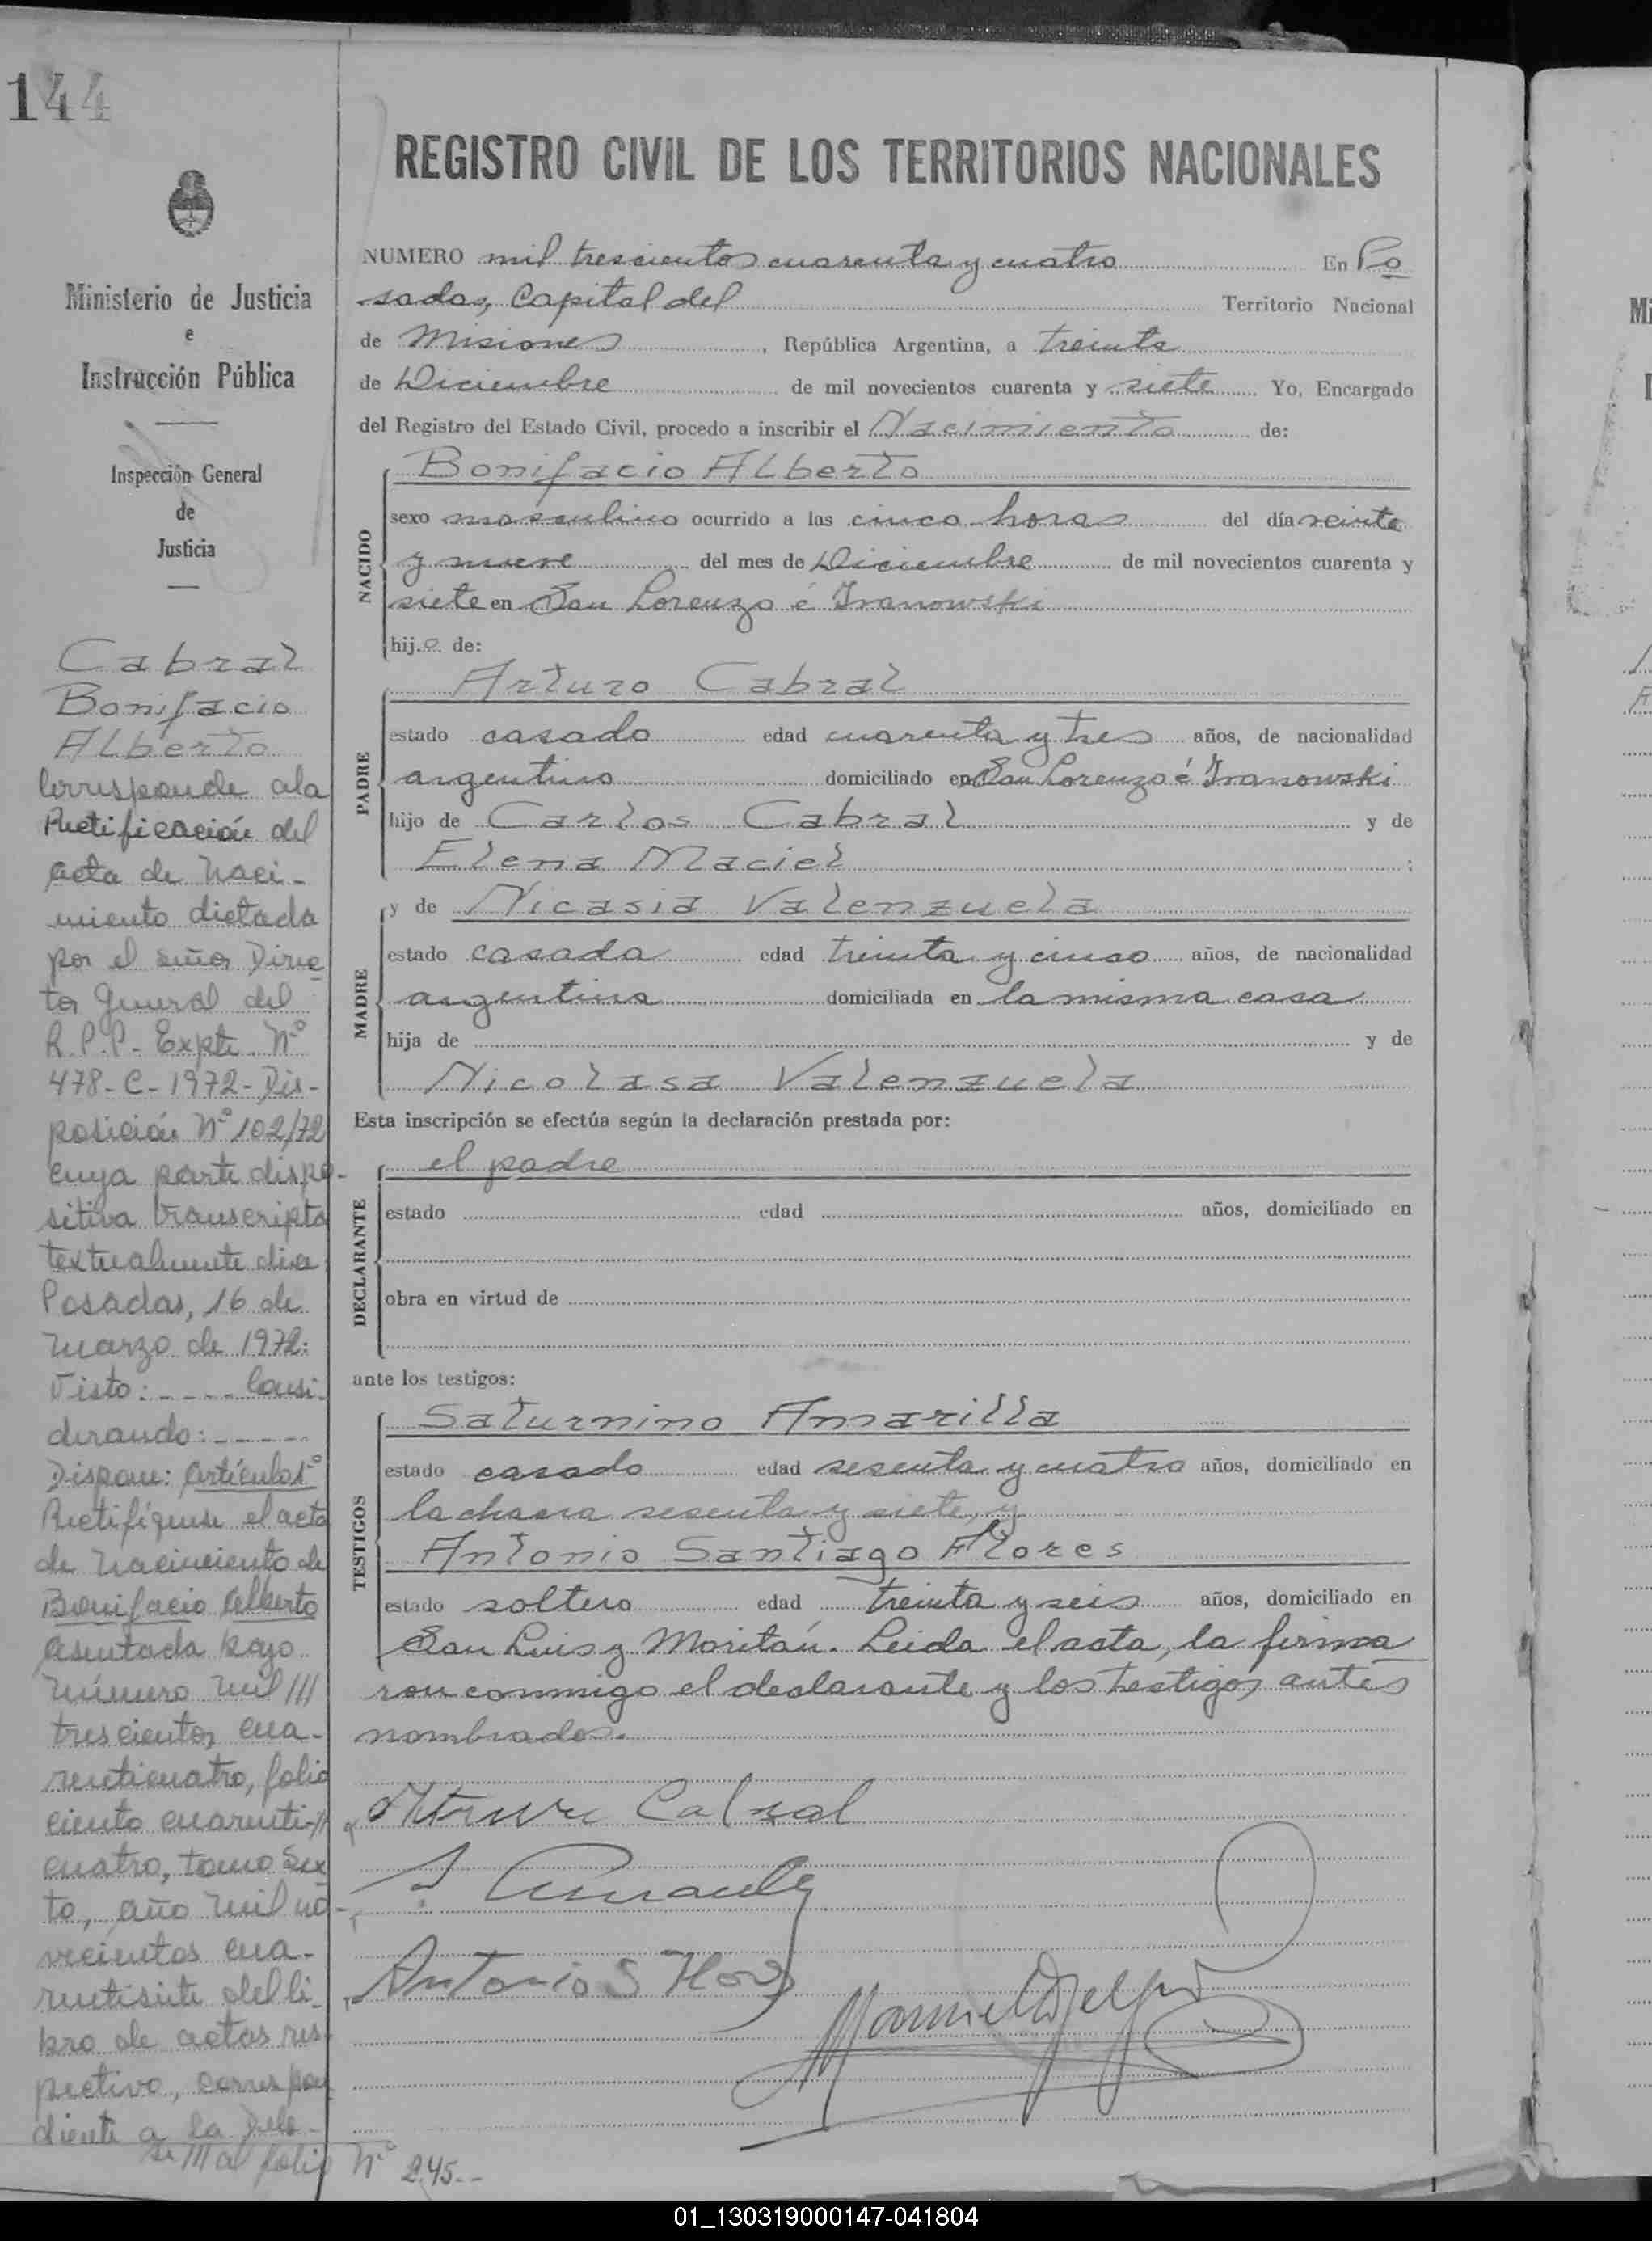 144
REGISTRO CIVIL DE LOS TERRITORIOS NACIONALES
Ministerio de Justicia
e
Instrucción Pública
Inspección General
de
Justicia
Cabral
Bonifacio
Alberto
Corresponde a la
Rectificación del
acta de Naci-
miento dictada
por el señor Direc
tor General del
R.P.P- Expte. Nº
478-C-1972-Dis-
posición Nº 102/72
cuya parte dispo-
sitiva transcripta
textualmente dice
Posadas, 16 de
Marzo de 1972:
Visto:---- Consi-
derando:-----
Dispone: Artículo 1º
Rectifíquese el acta
de nacimiento de
Bonifacio Alberto
asentada bajo
número mil ///
trescientos cua-
renticuatro, folio
ciento cuarenti-//
cuatro, tomo Sex
to, año mil no-
vecientos cua-
rentisiete del li-
bro de actas res-
pectivo, correspon
diente a la Dele-
al folio Nº 245.--
NUMERO mil trescientos cuarenta y cuatro En Po
sadas, Capital del Territorio Nacional
de Misiones, República Argentina, a treinta
de Diciembre de mil novecientos cuarenta y siete Yo, Encargado
del Registro del Estado Civil, procedo a inscribir el Nacimiento de:
Bonifacio Alberto
NACIDO
sexo masculino ocurrido a las cinco horas del día veinte
y nueve del mes de Diciembre de mil novecientos cuarenta y
siete en San Lorenzo é Ivanowski
hijo de:
Arturo Cabral
PADRE
estado casado edad cuarenta y tres años, de nacionalidad
argentino domiciliado en San Lorenzo é Ivanowski
hijo de Carlos Cabral y de
Elena Maciel ;
y de Nicasia Valenzuela
MADRE
estado casada edad treinta y cinco años, de nacionalidad
argentina domiciliada en la misma casa
hija de y de
Nicolasa Valenzuela
Esta inscripción se efectúa según la declaración prestada por:
el padre
DECLARANTE
estado edad años, domiciliado en
obra en virtud de
ante los testigos:
Saturnino Amarilla
TESTIGOS
estado casado edad sesenta y cuatro años, domiciliado en
la chacra sesenta y siete, y
Antonio Santiago Flores
estado soltero edad treinta y seis años, domiciliado en
San Luis y Moritán. Leida el acta, la firma
ron conmigo el declarante y los testigos antes
nombrados.
Arturo Cabral
Antonio S Flores
01_130319000147-041804